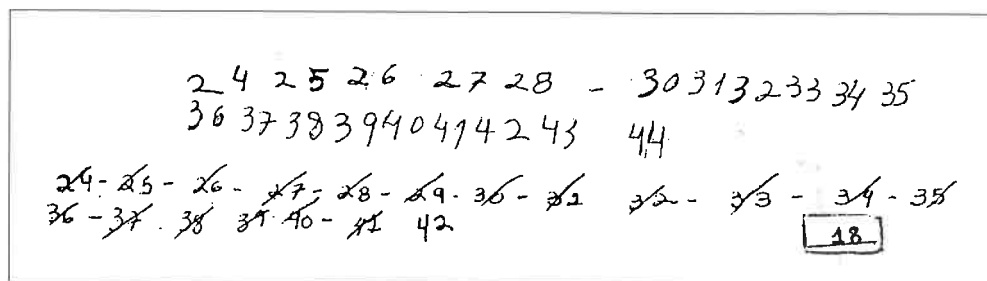 24 25 26 27 28 - 30 31 32 33 34 35
36 37 38 39 40 41 42 43 44
24 - 25 - 26 - 27 - 28 - 29 - 30 - 31 32 - 33 - 34 - 35
36 - 37 . 38 39 40 - 41 42
18